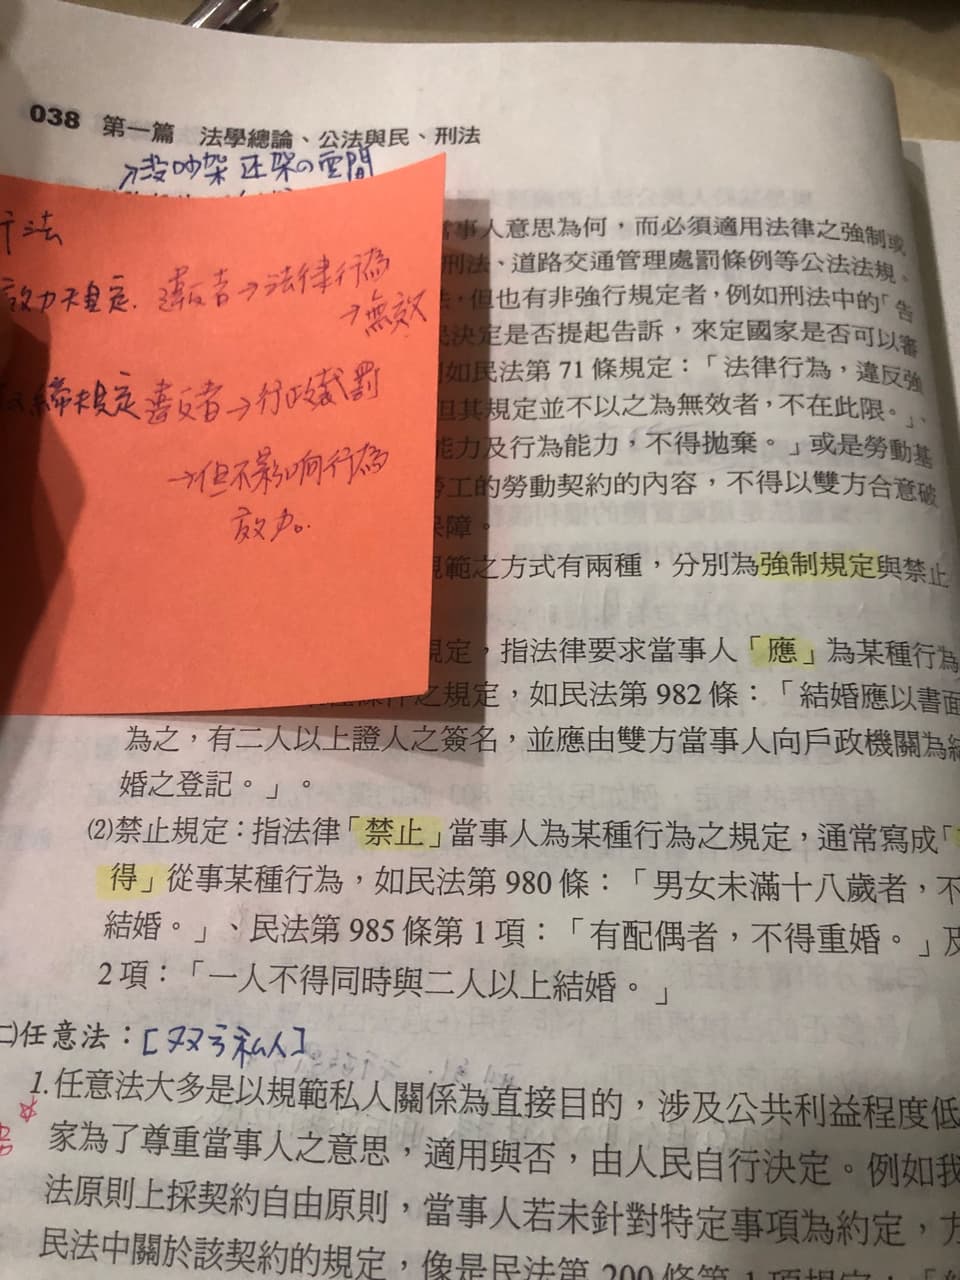 038 第一篇 法學總論、公法與民、刑法
→沒吵架 还架の空間
行法
效力規定. 違反者→法律行為
→無效
取締規定 違反者→行政裁罰
→但不影响行為
效力。
當事人意思為何，而必須適用法律之強制或
刑法、道路交通管理處罰條例等公法法規。
，但也有非強行規定者，例如刑法中的「告
決定是否提起告訴，來定國家是否可以審
如民法第 71 條規定：「法律行為，違反強
但其規定並不以之為無效者，不在此限。」、
能力及行為能力，不得拋棄。」或是勞動基
勞工的勞動契約的內容，不得以雙方合意破
保障。
規範之方式有兩種，分別為強制規定與禁止
規定，指法律要求當事人「應」為某種行為
之規定，如民法第 982 條：「結婚應以書面
為之，有二人以上證人之簽名，並應由雙方當事人向戶政機關為結
婚之登記。」。
⑵禁止規定：指法律「禁止」當事人為某種行為之規定，通常寫成「
得」從事某種行為，如民法第 980 條：「男女未滿十八歲者，不
結婚。」、民法第 985 條第 1 項：「有配偶者，不得重婚。」及
2 項：「一人不得同時與二人以上結婚。」
㈡任意法：[双方私人]
1.任意法大多是以規範私人關係為直接目的，涉及公共利益程度低
家為了尊重當事人之意思，適用與否，由人民自行決定。例如我
法原則上採契約自由原則，當事人若未針對特定事項為約定，方
民法中關於該契約的規定，像是民法第 200 條第 1 項規定：「